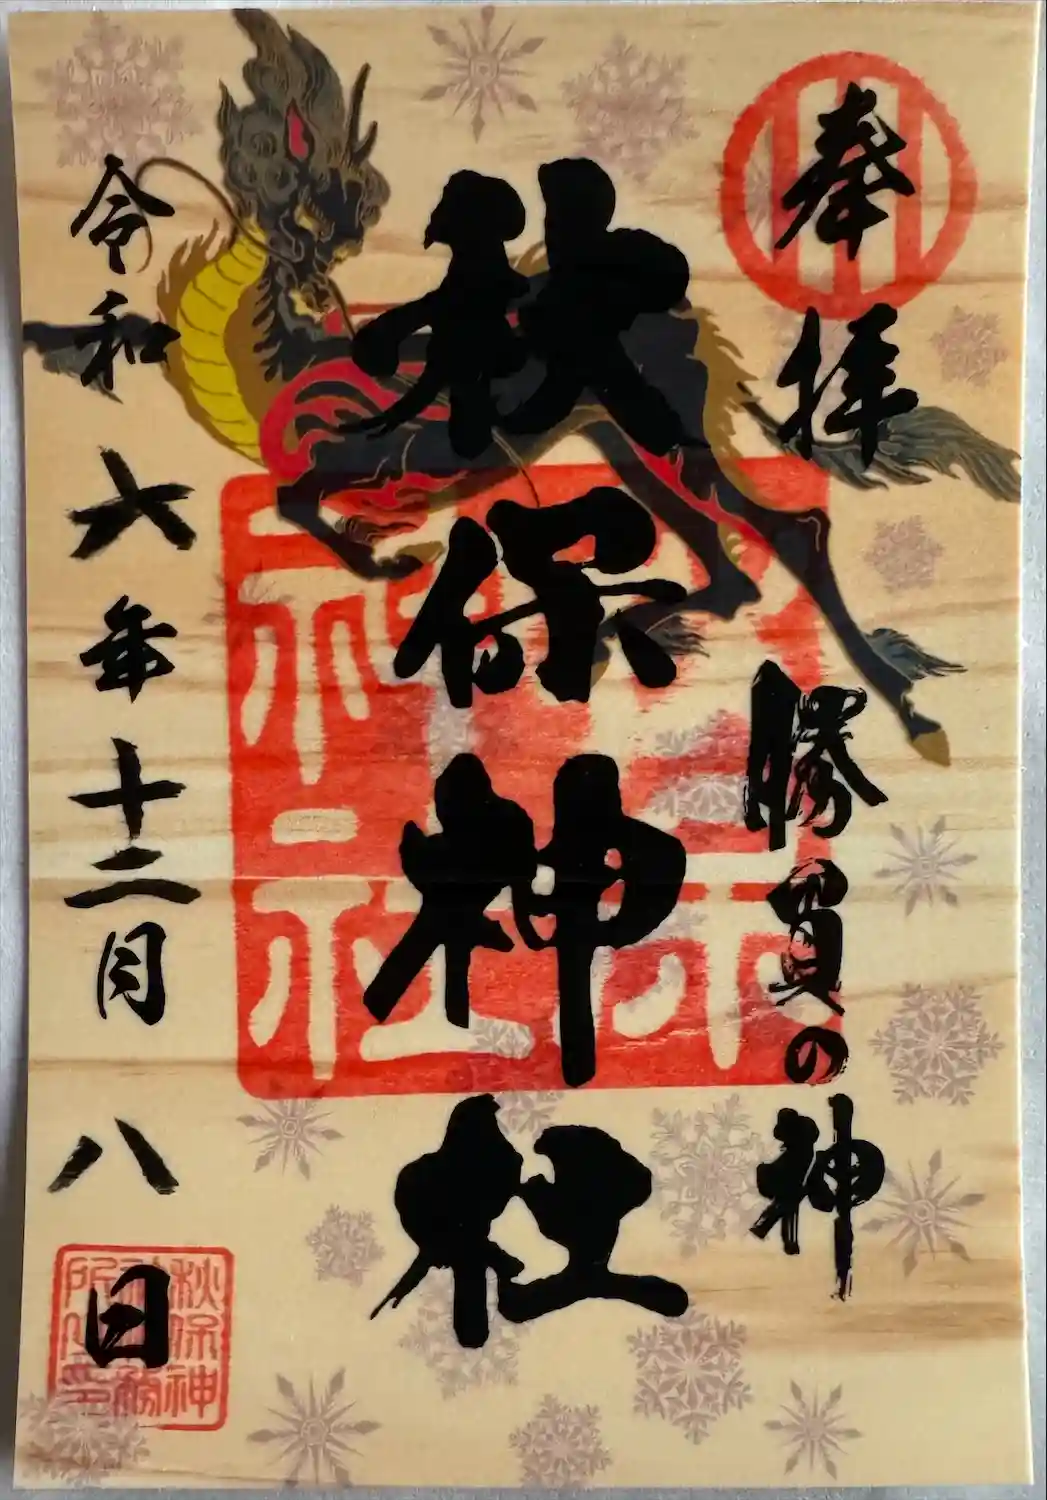 奉拝
勝負の神
秋保神社
令和六年十二月八日
秋保神
社務
所之印